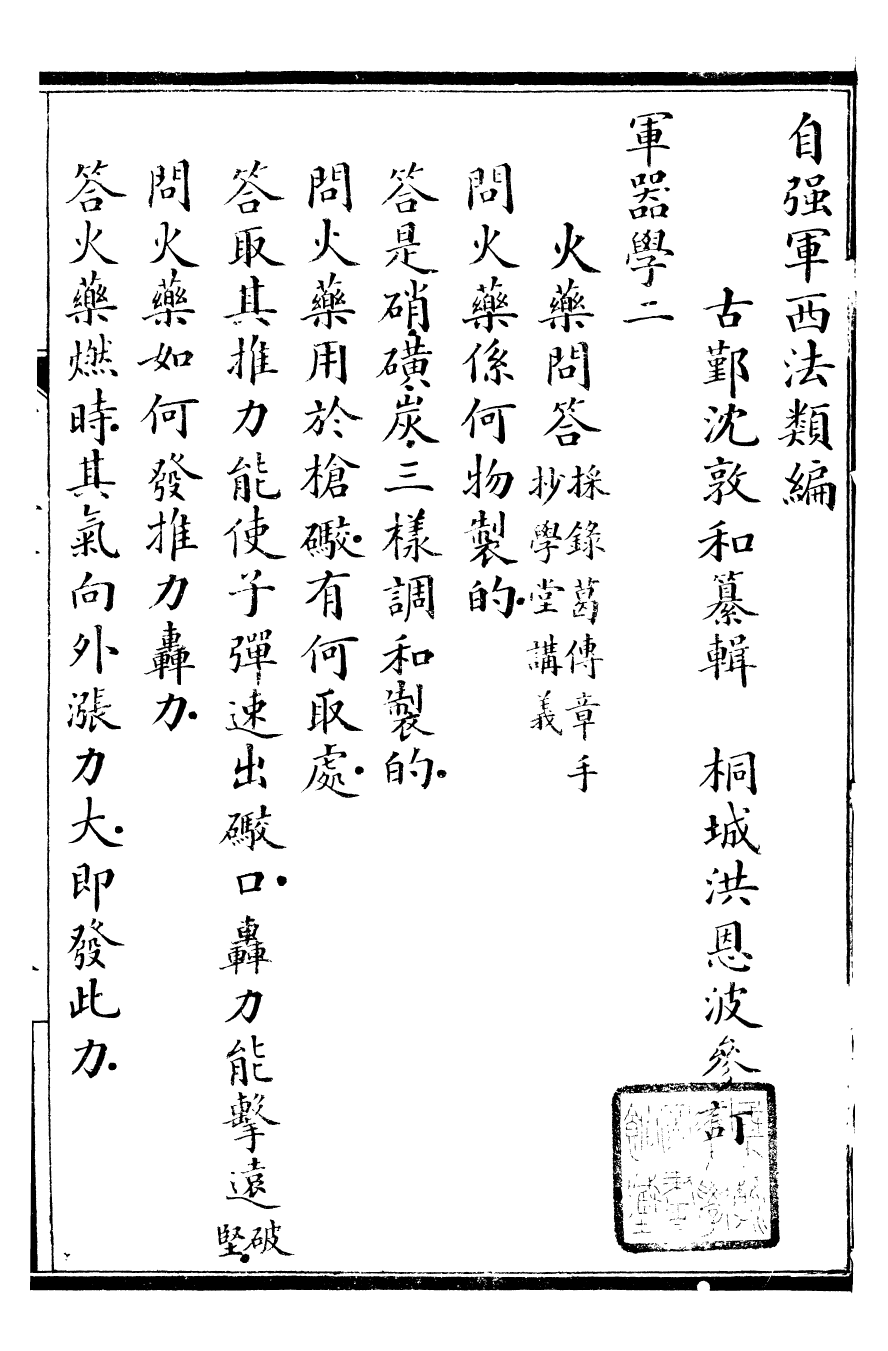 自强軍西法類編
古鄞沈敦和纂輯　桐城洪恩波參訂
軍器學二
火藥問答採錄葛傳章手抄學堂講義
問火藥係何物製的．
答是硝．磺．炭．三樣調和製的．
問火藥用於槍礮．有何取處．
答取其推力能使子彈速出礮口．轟力能擊遠破堅．
問火藥如何發推力轟力．
答火藥燃時．其氣向外漲力大．即發此力．